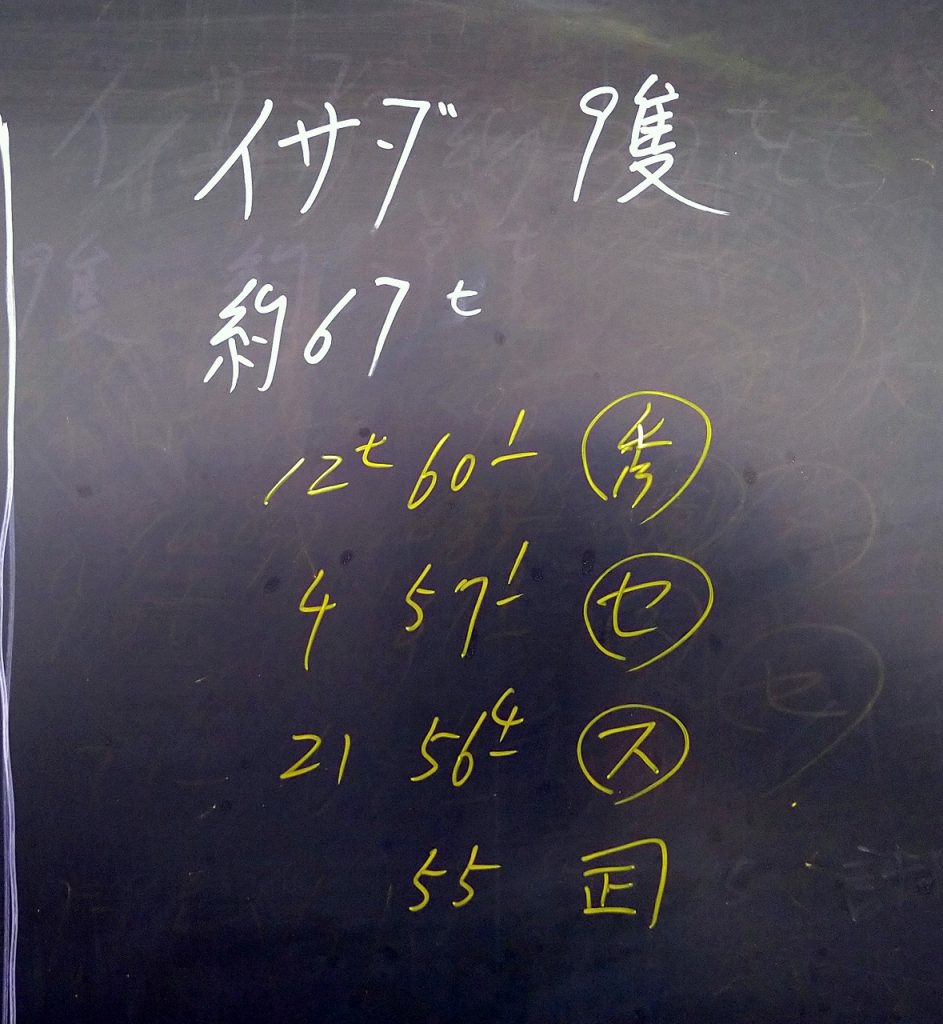 イサダ 9隻
約67t
12t 60 1 秀
4 57 1 セ
21 56 4 ス
55 正